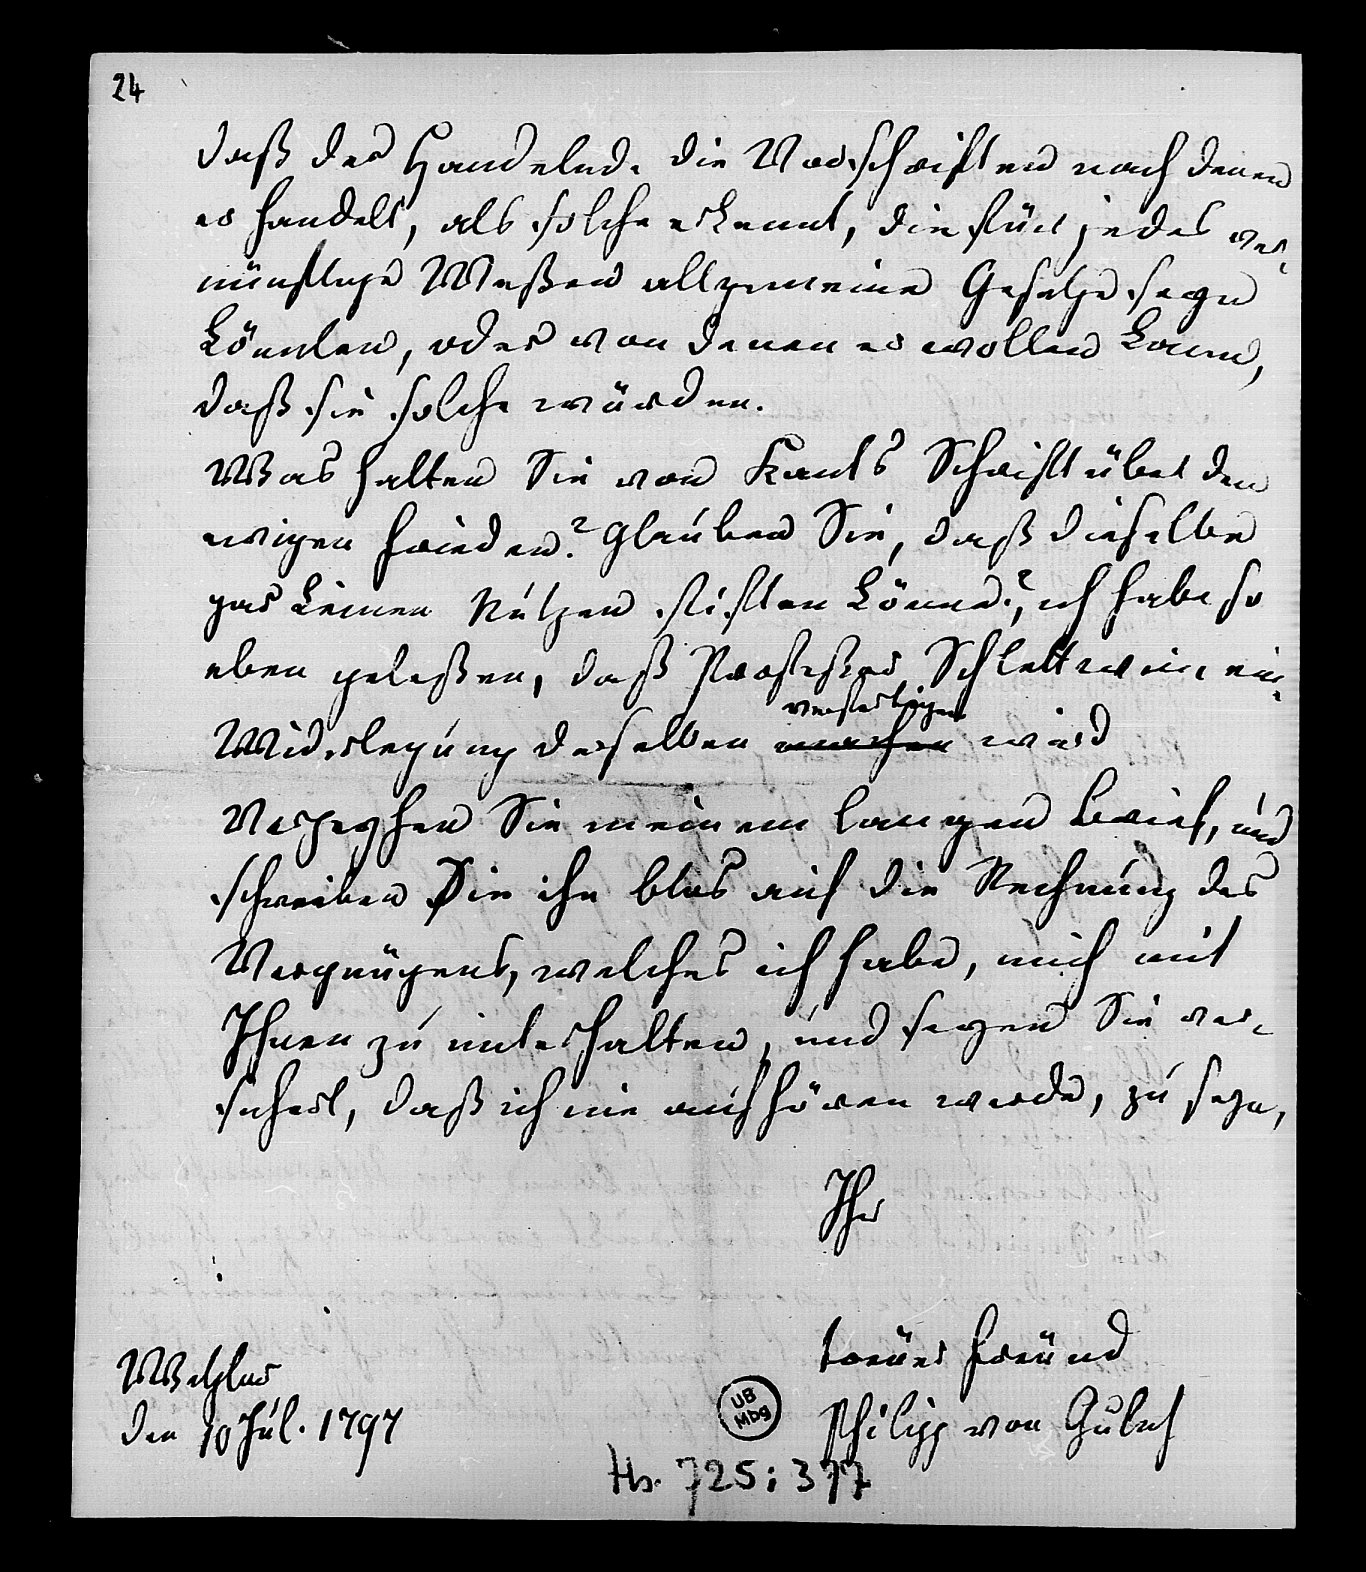 24
daß der Handelnde die Vorschriften nach denen
er handelt, als solche erkennt, die für jedes ver-
nünftige Weßen allgemeine Gesetze seyn
könnten, oder von denen er wollen kann,
daß sie solche würden.
Was halten Sie von Kants Schrift über den
ewigen Frieden? Glauben Sie, daß dieselbe
gar keinen Nutzen stiften könne?, ich habe so
eben geleßen, daß Profeßor Schlettwein eine
verfertigen
Widerlegung derselben machen wird
Verzeyhen Sie meinem langen Brief, und
schreiben Sie ihn blos auf die Rechnung des
Vergnügens, welches ich habe, mich mit
Ihnen zu unterhalten, und seyen Sie ver-
sichert, daß ich nie aufhören werde, zu seyn,
Ihr
treuer Freund
Wetzlar
den 10 Jul. 1797
Philipp von Gülich
UB
Mbg
Hs. 725: 377